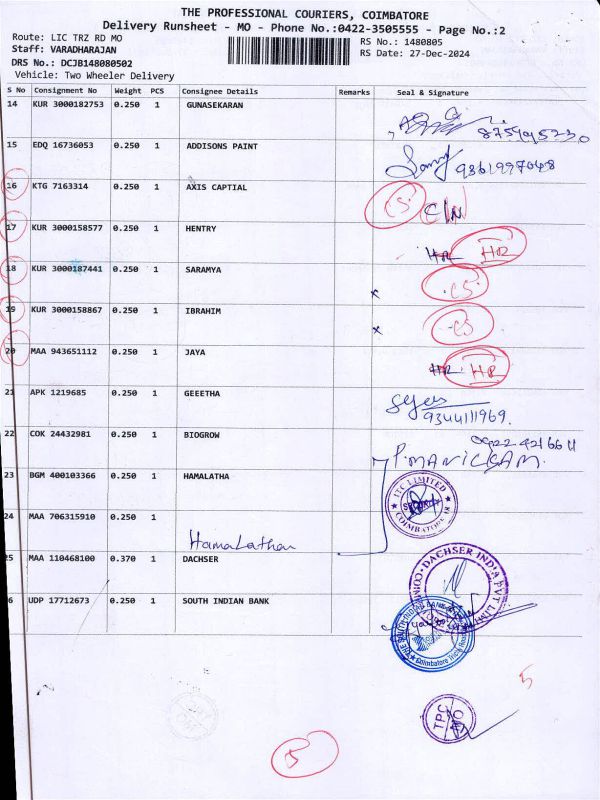 THE PROFESSIONAL COURIERS, COIMBATORE
Delivery Runsheet - MO - Phone No.:0422-3505555 - Page No.:2
Route: LIC TRZ RD MO
RS No.: 1480805
Staff: VARADHARAJAN
RS Date: 27-Dec-2024
DRS No.: DCJB148080502
Vehicle: Two Wheeler Delivery
S No Consignment No Weight PCS Consignee Details Remarks Seal & Signature
14 KUR 3000182753 0.250 1 GUNASEKARAN
15 EDQ 16736053 0.250 1 ADDISONS PAINT
9361997048
16 KTG 7163314 0.250 1 AXIS CAPTIAL
CS
17 KUR 3000158577 0.250 1 HENTRY
HR HR
18 KUR 3000187441 0.250 1 SARAMYA
x CS
19 KUR 3000158867 0.250 1 IBRAHIM
x CS
20 MAA 943651112 0.250 1 JAYA
HR HR
21 APK 1219685 0.250 1 GEEETHA
9344111969.
22 COK 24432981 0.250 1 BIOGROW
P.MANICKAM.
23 BGM 400103366 0.250 1 HAMALATHA
ITC LIMITED
SECURITY
COIMBATORE 18
24 MAA 706315910 0.250 1
Hamalathaa
25 MAA 110468100 0.370 1 DACHSER
DACHSER INDIA PVT LTD
6 UDP 17712673 0.250 1 SOUTH INDIAN BANK
5
TPC
MO
5